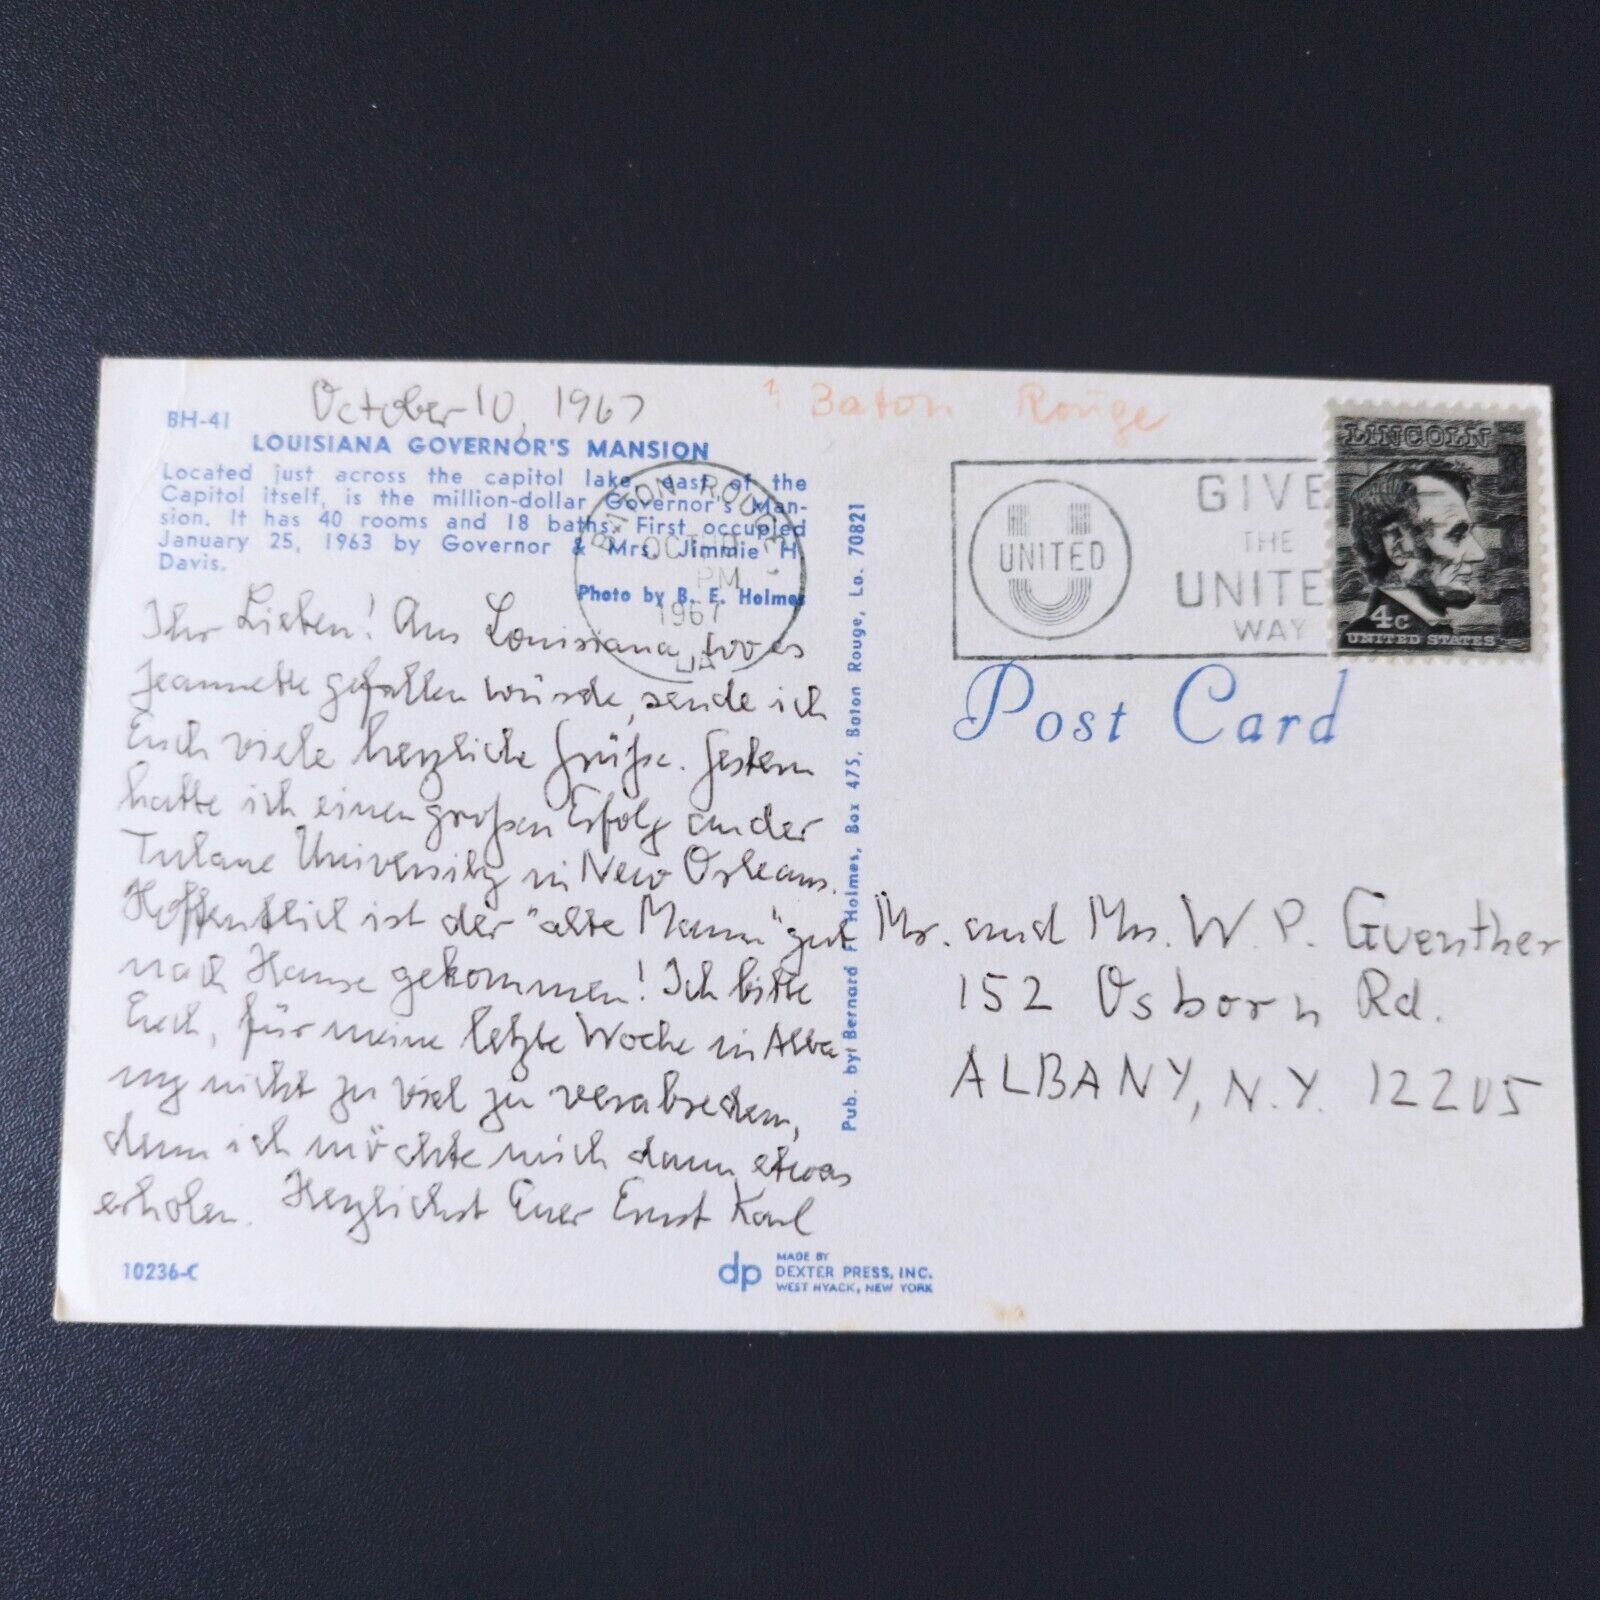 October 10, 1967
Baton Rouge
BH-41
LOUISIANA GOVERNOR'S MANSION
Located just across the capitol lake, east of the
Capitol itself, is the million-dollar Governor's Man-
sion. It has 40 rooms and 18 baths. First occupied
January 25, 1963 by Governor & Mrs. Jimmie H.
Davis.
Photo by B. E. Holmes
BATON ROUGE
OCT 10
PM
1967
LA
Ihr Lieben! Aus Louisiana, wo es
Jeannette gefallen würde, sende ich
Euch viele herzliche Grüße. Gestern
hatte ich einen großen Erfolg an der
Tulane University in New Orleans.
Hoffentlich ist der "alte Mann" gut
nach Hause gekommen! Ich bitte
Euch, für meine letzte Woche in Alba-
ny nicht zu viel zu verabreden,
denn ich möchte mich dann etwas
erholen. Herzlichst Euer Ernst Karl
10236-C
dp
MADE BY
DEXTER PRESS, INC.
WEST NYACK, NEW YORK
Pub. by: Bernard F. Holmes, Box 475, Baton Rouge, La. 70821
UNITED
GIVE
THE
UNITE
WAY
LINCOLN
4c
UNITED STATES
Post Card
Mr. and Mrs. W. P. Guenther
152 Osborn Rd.
ALBANY, N.Y. 12205